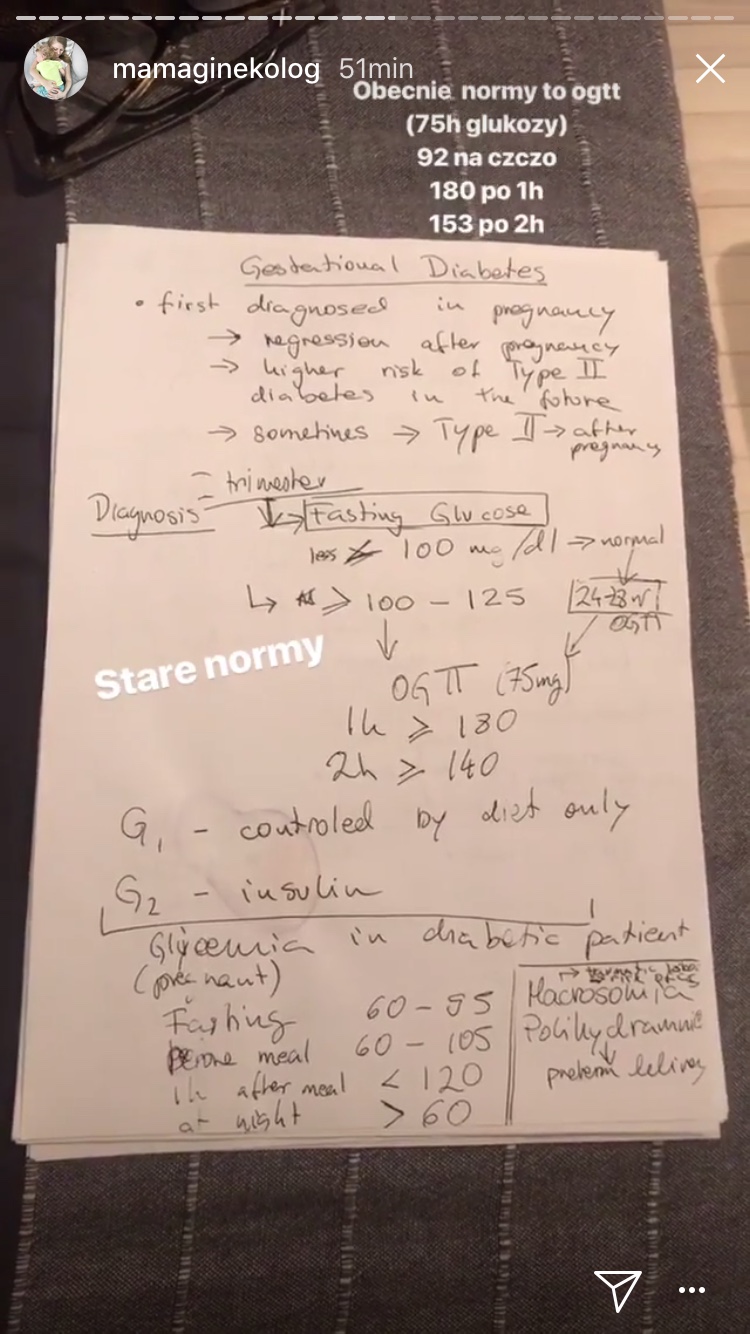 mamaginekolog 51min
Obecnie normy to ogtt
(75h glukozy)
92 na czczo
180 po 1h
153 po 2h
Gestational Diabetes
• first diagnosed in pregnancy
→ regression after pregnancy
→ higher risk of Type II
diabetes in the future
→ sometines → Type II → after
pregnancy
trimester
Diagnosis
→ Fasting Glucose
less 100 mg/dl → normal
↳ ≥ 100 - 125
24-28
OGTT
Stare normy
OGTT (75mg)
1h ≥ 180
2h ≥ 140
G1 - controled by diet only
G2 - insulin
Glycemia in diabetic patient
(pregnant)
Fasting 60-95
before meal 60 - 105
1h after meal < 120
at night > 60
Macrosomia
Polihydramnio
↓
preterm delivery